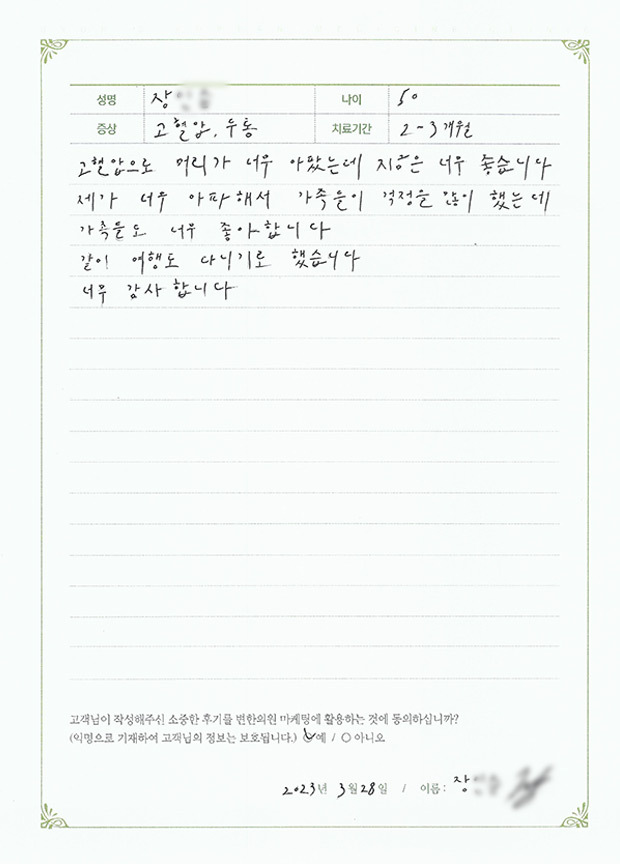 성명 장 나이 50
증상 고혈압, 두통 치료기간 2-3개월
고혈압으로 머리가 너무 아팠는데 지금은 너무 좋습니다
제가 너무 아파해서 가족들이 걱정을 많이 했는데
가족들도 너무 좋아합니다
같이 여행도 다니기로 했습니다
너무 감사합니다
고객님이 작성해주신 소중한 후기를 변한의원 마케팅에 활용하는 것에 동의하십니까?
(익명으로 기재하여 고객님의 정보는 보호됩니다.) ○ 예 / ○ 아니오
2023년 3월 28일 / 이름 : 장